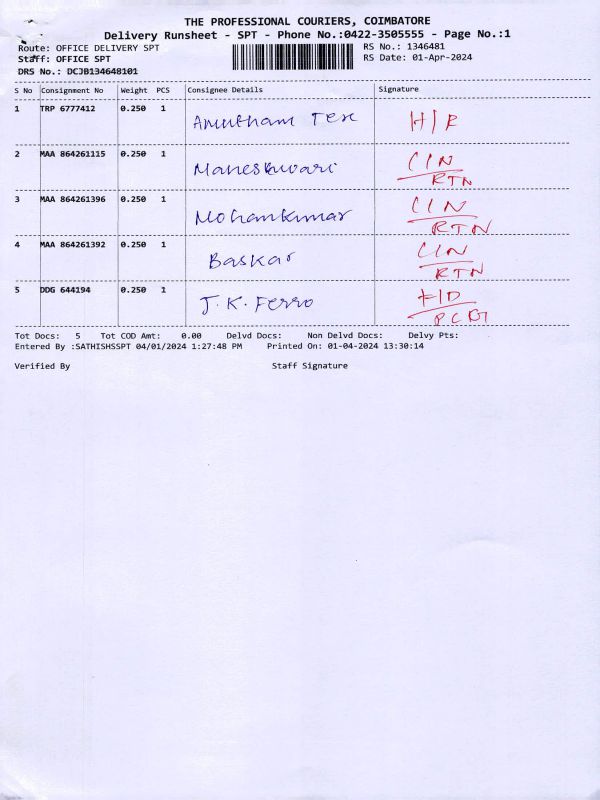 THE PROFESSIONAL COURIERS, COIMBATORE
Delivery Runsheet - SPT - Phone No.:0422-3505555 - Page No.:1
Route: OFFICE DELIVERY SPT RS No.: 1346481
Staff: OFFICE SPT RS Date: 01-Apr-2024
DRS No.: DCJB134648101
S No Consignment No Weight PCS Consignee Details Signature
1 TRP 6777412 0.250 1
2 MAA 864261115 0.250 1 Maheshwari C/N
RTN
3 MAA 864261396 0.250 1 Mohankumar C/N
RTN
4 MAA 864261392 0.250 1 Baskar C/N
RTN
5 DDG 644194 0.250 1 J.K. Ferro
Tot Docs: 5 Tot COD Amt: 0.00 Delvd Docs: Non Delvd Docs: Delvy Pts:
Entered By :SATHISHSSPT 04/01/2024 1:27:48 PM Printed On: 01-04-2024 13:30:14
Verified By Staff Signature